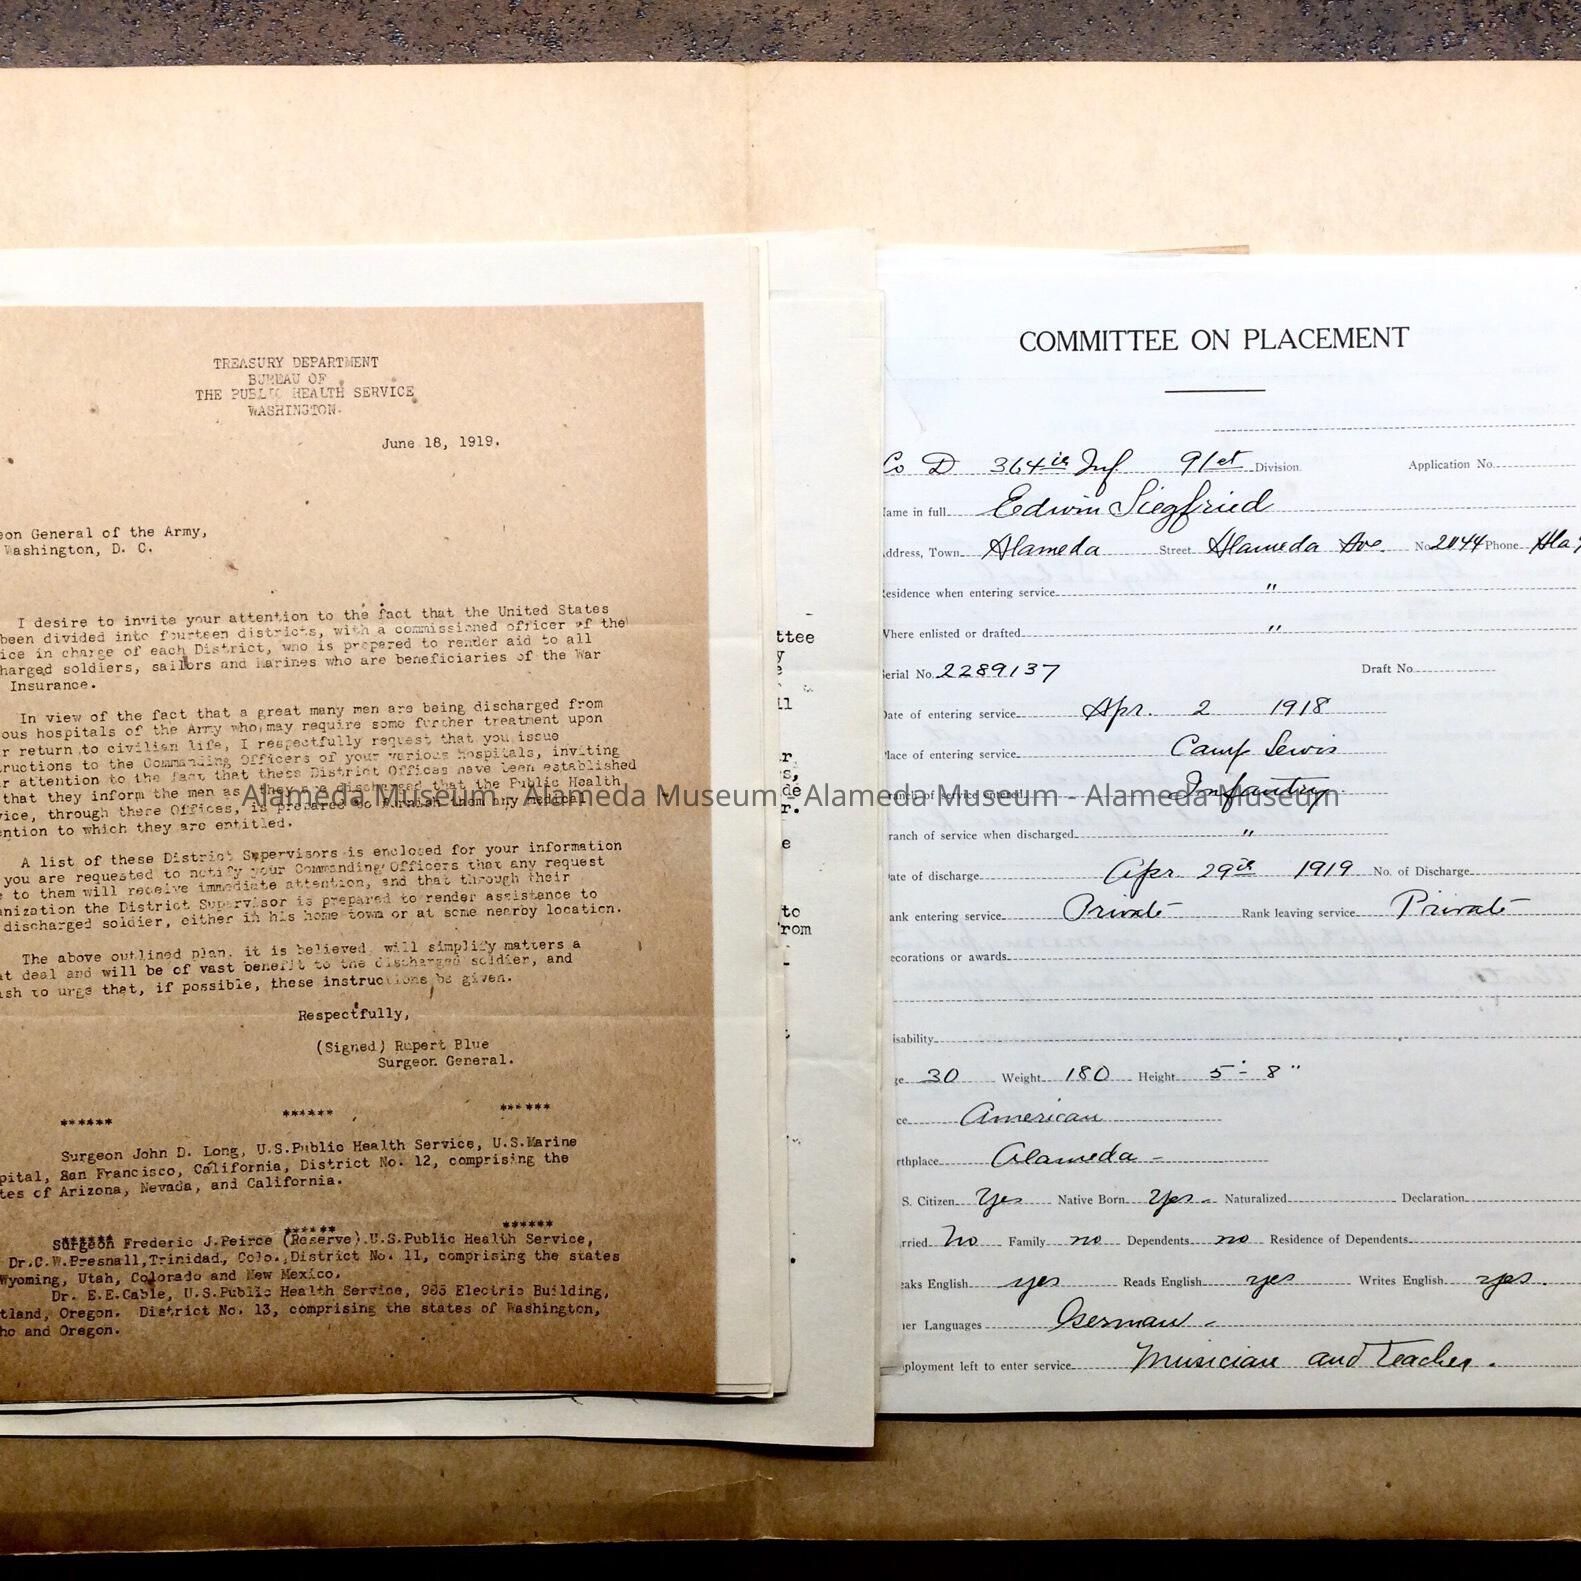 TREASURY DEPARTMENT
BUREAU OF
THE PUBLIC HEALTH SERVICE
WASHINGTON.
June 18, 1919.
eon General of the Army,
Washington, D. C.
I desire to invite your attention to the fact that the United States
been divided into fourteen districts, with a commissioned officer of the
ice in charge of each District, who is prepared to render aid to all
harged soldiers, sailors and Marines who are beneficiaries of the War
Insurance.
In view of the fact that a great many men are being discharged from
ous hospitals of the Army who may require some further treatment upon
r return to civilian life, I respectfully request that you issue
ructions to the Commanding Officers of your various hospitals, inviting
r attention to the fact that these District Offices have been established
that they inform the men as they are discharged that the Public Health
vice, through these Offices, is prepared to furnish them any medical
ention to which they are entitled.
A list of these District Supervisors is enclosed for your information
you are requested to notify your Commanding Officers that any request
e to them will receive immediate attention, and that through their
anization the District Supervisor is prepared to render assistance to
discharged soldier, either in his home town or at some nearby location.
The above outlined plan, it is believed, will simplify matters a
at deal and will be of vast benefit to the discharged soldier, and
ish to urge that, if possible, these instructions be given.
Respectfully,
(Signed) Rupert Blue
Surgeon General.
****** ****** ******
Surgeon John D. Long, U.S.Public Health Service, U.S.Marine
pital, San Francisco, California, District No. 12, comprising the
tes of Arizona, Nevada, and California.
****** ****** ******
Surgeon Frederic J.Peirce (Reserve).U.S.Public Health Service,
Dr.C.W.Presnall,Trinidad, Colo.,District No. 11, comprising the states
Wyoming, Utah, Colorado and New Mexico.
Dr. E.E.Cable, U.S.Public Health Service, 985 Electric Building,
tland, Oregon. District No. 13, comprising the states of Washington,
ho and Oregon.
ttee
y
e
ll
r,
s,
de
r.
e
to
rom
COMMITTEE ON PLACEMENT
Co D 364th Inf 91st Division Application No.
Name in full Edwin Siegfried
Address, Town Alameda Street Alameda Ave. No 2044 Phone Ala
Residence when entering service "
Where enlisted or drafted "
Serial No. 2289137 Draft No
Date of entering service Apr. 2 1918
Place of entering service Camp Lewis
ranch of service entered Infantry
ranch of service when discharged "
ate of discharge Apr 29th 1919 No. of Discharge
ank entering service Private Rank leaving service Private
ecorations or awards
isability
ge 30 Weight 180 Height 5'- 8"
ce American
rthplace Alameda -
S. Citizen Yes Native Born Yes - Naturalized Declaration
rried No Family no Dependents no Residence of Dependents
eaks English yes Reads English yes Writes English yes.
her Languages German -
ployment left to enter service Musician and Teacher.
Alameda Museum - Alameda Museum - Alameda Museum - Alameda Museum